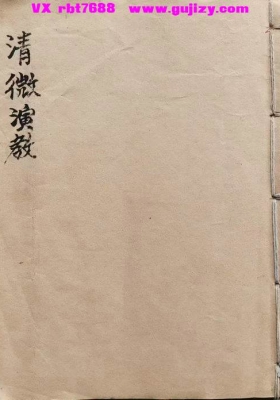 VX rbt7688   www.gujizy.com
清微演教